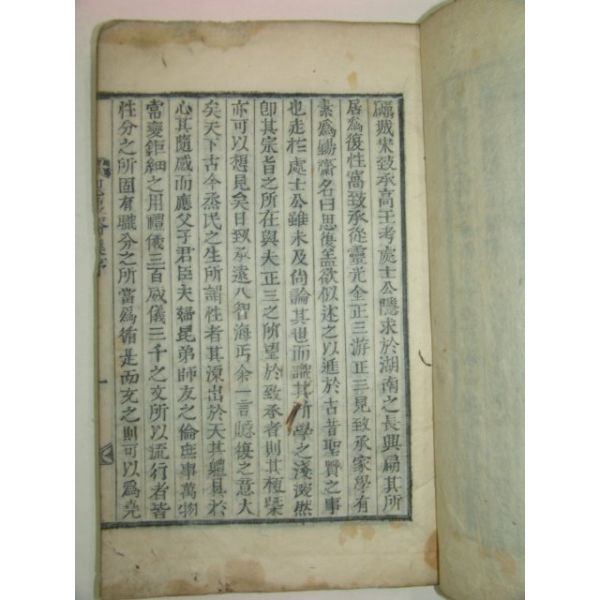 礪城宋致承高王考處士公隱求於湖南之長興扁其所
居爲復性窩致承從靈光金正三游正三見致承家學有
素爲易齋名曰思復盖欲似述之以進於古昔聖賢之事
也走於處士公雖未及尙論其世而識其所學之淺深然
卽其宗旨之所在與夫正三之所望於致承者則其梗槩
亦可以想見矣日致承遠八智海丐余一言
復之意大
矣天下古今烝民之生所謂性者其湶出於天其軆具於
心其隨感而應父子君臣夫婦昆弟師友之倫庶事萬物
常變鉅細之用禮儀三百威儀三千之文所以流行者皆
性分之所固有職分之所當爲循是而充之則可以爲堯
序
一